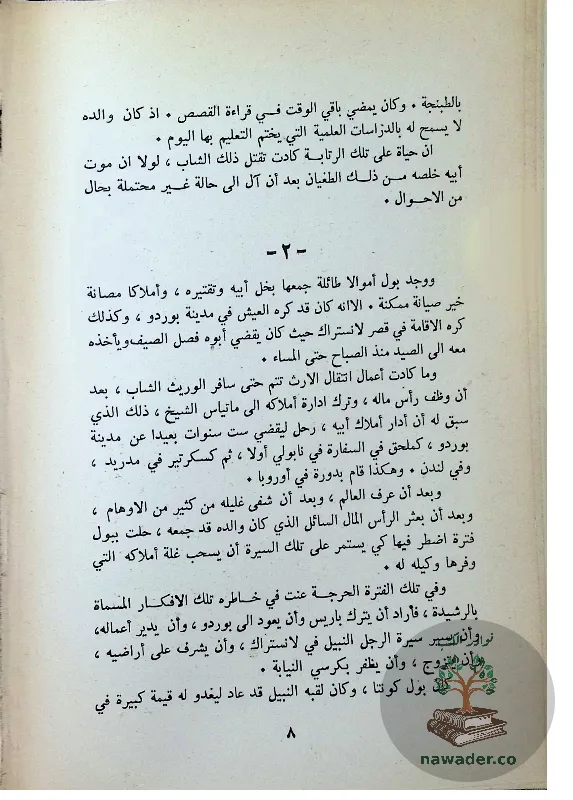 بالطبنجة . وكان يمضي باقي الوقت فـــي قراءة القصص . اذ كان والده
لا يسمح له بالدراسات العلمية التي يختم التعليم بها اليوم .
ان حياة على تلك الرتابـــة كادت تقتل ذلك الشاب ، لولا ان موت
أبيه خلصه مـــن ذلـــك الطغيان بعد أن آل الى حالة غـــير محتملة بحال
من الاحـــوال .
- ٢ -
ووجد بول أموالا طائلة جمعها بخل أبيه وتقتيره ، وأملاكا مصانة
خير صيانة ممكنة . الاانه كان قد كره العيش في مدينة بوردو ، وكذلك
كره الاقامة في قصر لانستراك حيث كان يقضي أبوه فصل الصيف ويأخذه
معه الى الصيد منذ الصباح حتى المساء .
وما كادت أعمال انتقال الارث تتم حتى سافر الوريث الشاب ، بعد
أن وظف رأس ماله ، وترك ادارة أملاكه الى ماتياس الشيخ ، ذلك الذي
سبق له أن أدار أملاك أبيه ، رحل ليقضي ست سنوات بعيدا عن مدينة
بوردو ، كملحق في السفارة في نابولي أولا ، ثم كسكرتير في مدريد ،
وفي لندن . وهكذا قام بدورة في أوروبا .
وبعد أن عرف العالم ، وبعد أن شفى غليله من كثير من الاوهام ،
وبعد أن بعثر الرأس المال السائل الذي كان والده قد جمعه ، حلت ببول
فترة اضطر فيها كي يستمر على تلك السيرة أن يسحب غلة أملاكه التي
وفرها وكيله له .
وفي تلك الفترة الحرجـــة عنت في خـاطره تلك الافكـــار المسماة
بالرشيدة ، فأراد أن يترك باريس وأن يعود الى بوردو ، وأن يدير أعماله،
وأن يسير سيرة الرجل النبيل في لانستراك ، وأن يشرف على أراضيه ،
وأن يتزوج ، وأن يظفر بكرسي النيابة .
كان بول كونتا ، وكان لقبه النبيل قد عاد ليغدو له قيمة كبيرة في
٨
نوادر الكتب
nawader.co